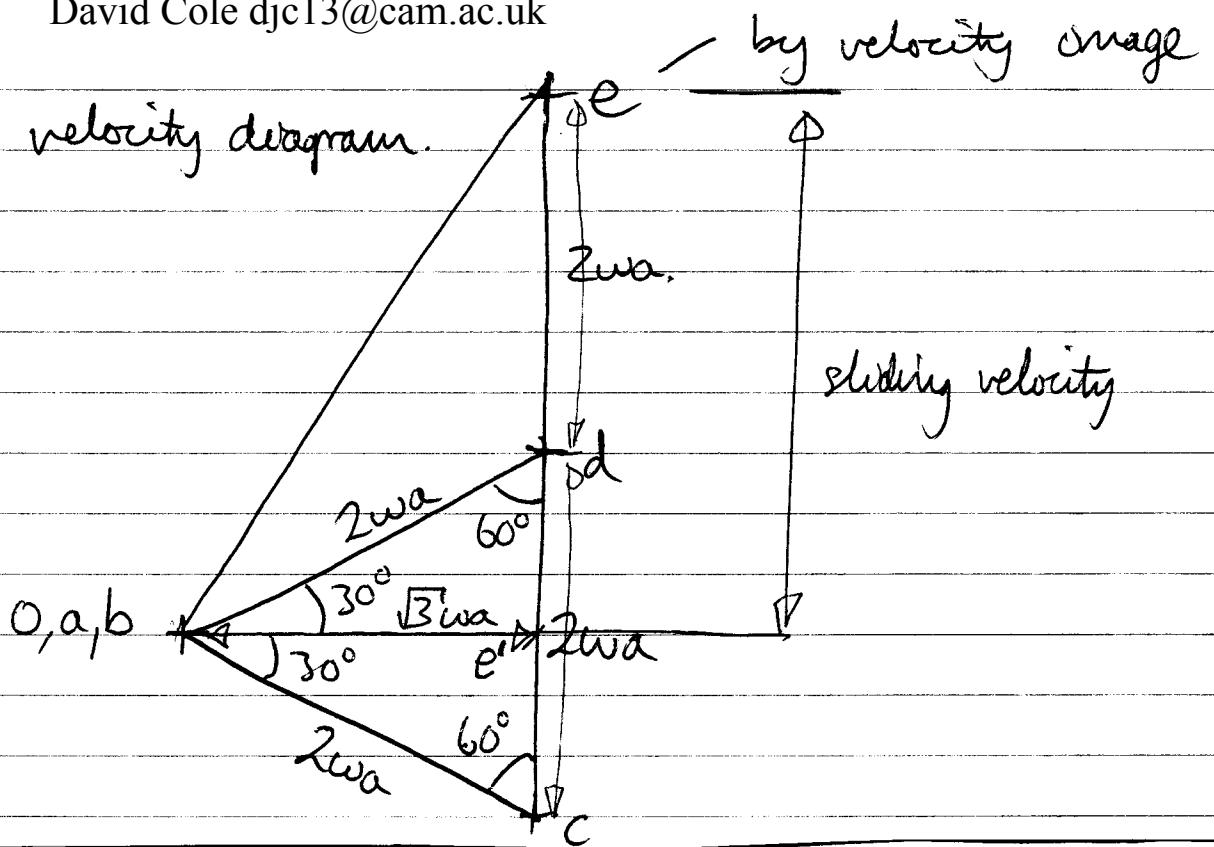 David Cole djc13@cam.ac.uk
by velocity image
e
velocity diagram.
2ωa.
sliding velocity
d
2ωa
60°
30°
√3ωa
0,a,b
e'
2ωa
30°
60°
2ωa
c